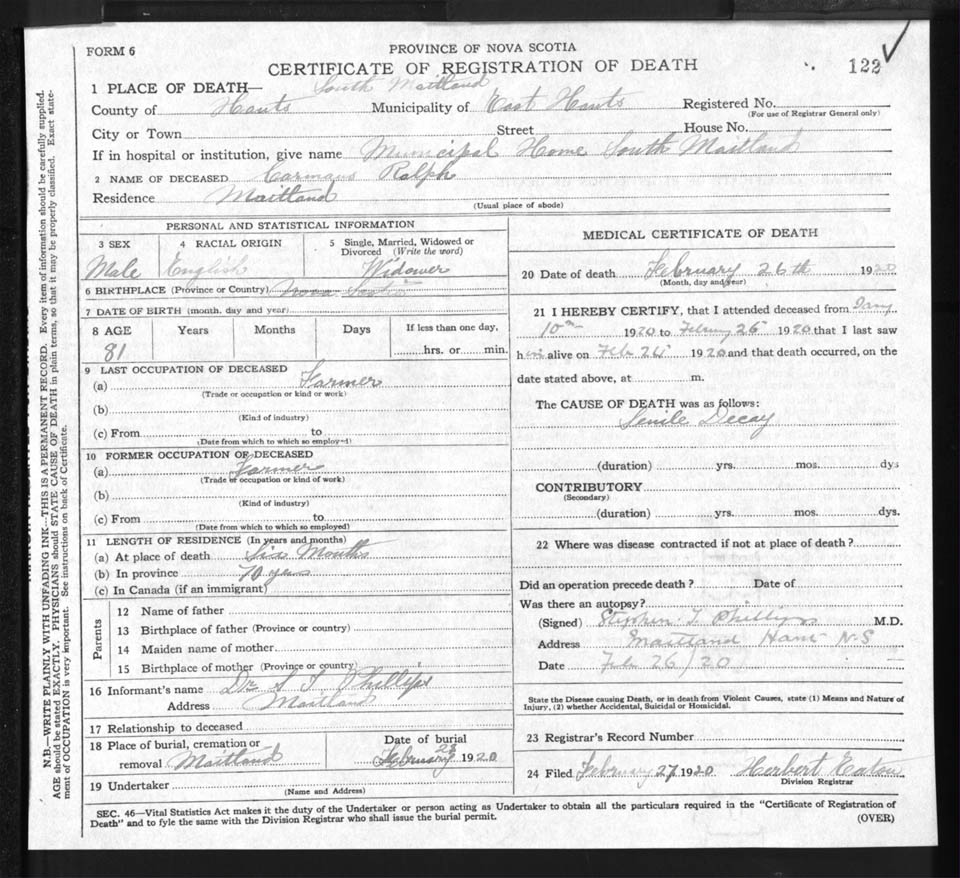 FORM 6
PROVINCE OF NOVA SCOTIA
CERTIFICATE OF REGISTRATION OF DEATH
122
1 PLACE OF DEATH— South Maitland
County of Hants Municipality of East Hants Registered No.
(For use of Registrar General only)
City or Town Street House No.
If in hospital or institution, give name Municipal Home South Maitland
2 NAME OF DECEASED Ralph
Residence Maitland
(Usual place of abode)
PERSONAL AND STATISTICAL INFORMATION
3 SEX 4 RACIAL ORIGIN 5 Single, Married, Widowed or Divorced (Write the word)
Male English Widower
6 BIRTHPLACE (Province or Country) Nova Scotia
7 DATE OF BIRTH (month, day and year)
8 AGE Years Months Days If less than one day,
81 hrs. or min.
9 LAST OCCUPATION OF DECEASED
(a) Farmer
(Trade or occupation or kind or work)
(b)
(Kind of industry)
(c) From to
(Date from which to which so employed)
10 FORMER OCCUPATION OF DECEASED
(a) Farmer
(Trade or occupation or kind of work)
(b)
(Kind of industry)
(c) From to
(Date from which to which so employed)
11 LENGTH OF RESIDENCE (In years and months)
(a) At place of death Six Months
(b) In province 70 years
(c) In Canada (if an immigrant)
Parents
12 Name of father
13 Birthplace of father (Province or country)
14 Maiden name of mother
15 Birthplace of mother (Province or country)
16 Informant's name Dr S T Phillips
Address Maitland
17 Relationship to deceased
18 Place of burial, cremation or removal Maitland
Date of burial
February 28 1920
19 Undertaker
(Name and Address)
MEDICAL CERTIFICATE OF DEATH
20 Date of death February 26th 1920
(Month, day and year)
21 I HEREBY CERTIFY, that I attended deceased from Jany
10th 1920 to Februay 26 1920 that I last saw
him alive on Feb 26 1920 and that death occurred, on the
date stated above, at m.
The CAUSE OF DEATH was as follows:
Senile Decay
(duration) yrs. mos. dys
CONTRIBUTORY
(Secondary)
(duration) yrs. mos. dys.
22 Where was disease contracted if not at place of death?
Did an operation precede death? Date of
Was there an autopsy?
(Signed) Stephen T Phillips M.D.
Address Maitland Hants N-S
Date Feb 26/20
State the Disease causing Death, or in death from Violent Causes, state (1) Means and Nature of
Injury, (2) whether Accidental, Suicidal or Homicidal.
23 Registrar's Record Number
24 Filed February 27 1920 Herbert Eaton
Division Registrar
SEC. 46—Vital Statistics Act makes it the duty of the Undertaker or person acting as Undertaker to obtain all the particulars required in the "Certificate of Registration of
Death" and to fyle the same with the Division Registrar who shall issue the burial permit.
(OVER)
N.B.—WRITE PLAINLY WITH UNFADING INK—THIS IS A PERMANENT RECORD. Every item of information should be carefully supplied.
AGE should be stated EXACTLY. PHYSICIANS should STATE CAUSE OF DEATH in plain terms, so that it may be properly classified. Exact state-
ment of OCCUPATION is very important. See instructions on back of Certificate.